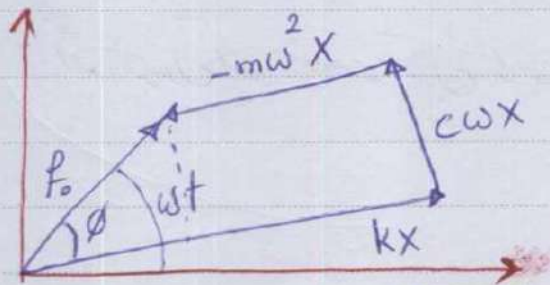 -mω²X
cωX
f₀
ωt
φ
kX